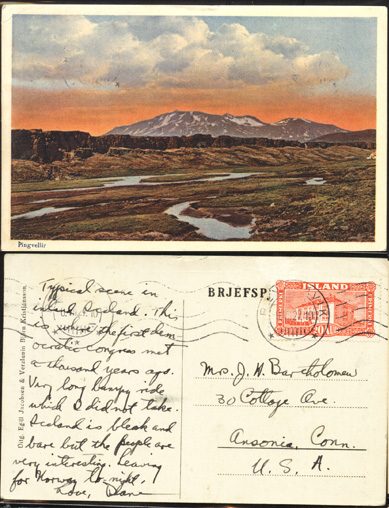 Þingvellir
BRJEFSP
ISLAND
Útg. Egill Jacobsen & Verzlunin Björn Kristjánsson.
Typical scene in
inland Iceland. This
is where the first dem
ocratic congress met
a thousand years ago.
Very long bumpy ride
which I did not take.
Iceland is bleak and
bare but the people are
very interesting. Leaving
for Norway to-night.
Love, Diane
Mrs. J. H. Bartholomew
30 Cottage Ave.
Ansonia, Conn.
U. S. A.